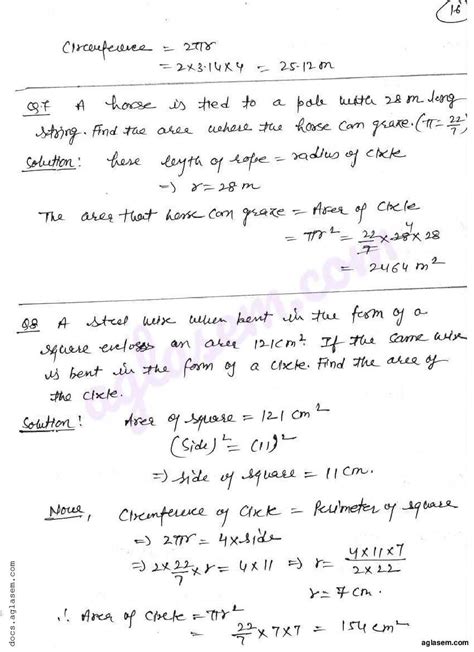 16
Circumference = 2πr
= 2×3.14×4 = 25.12 m
Q7 A horse is tied to a pole with 28 m long
string. Find the area where the horse can graze. (π = 22/7)
Solution: here length of rope = radius of circle
⇒ r = 28 m
The area that horse can graze = Area of Circle
= πr² = 22/7 × 28 4 × 28
= 2464 m²
Q8 A steel wire when bent in the form of a
square encloses an area 121cm². If the same wire
is bent in the form of a circle. Find the area of
the circle.
Solution: Area of square = 121 cm²
(Side)² = (11)²
⇒ side of square = 11 cm.
Now, Circumference of Circle = Perimeter of square
⇒ 2πr = 4×side
⇒ 2×22/7×r = 4×11 ⇒ r = 4×11×7/2×22
r = 7 cm.
∴ Area of circle = πr²
= 22/7 ×7×7 = 154 cm²
aglasem.com
docs.aglasem.com
aglasem.com